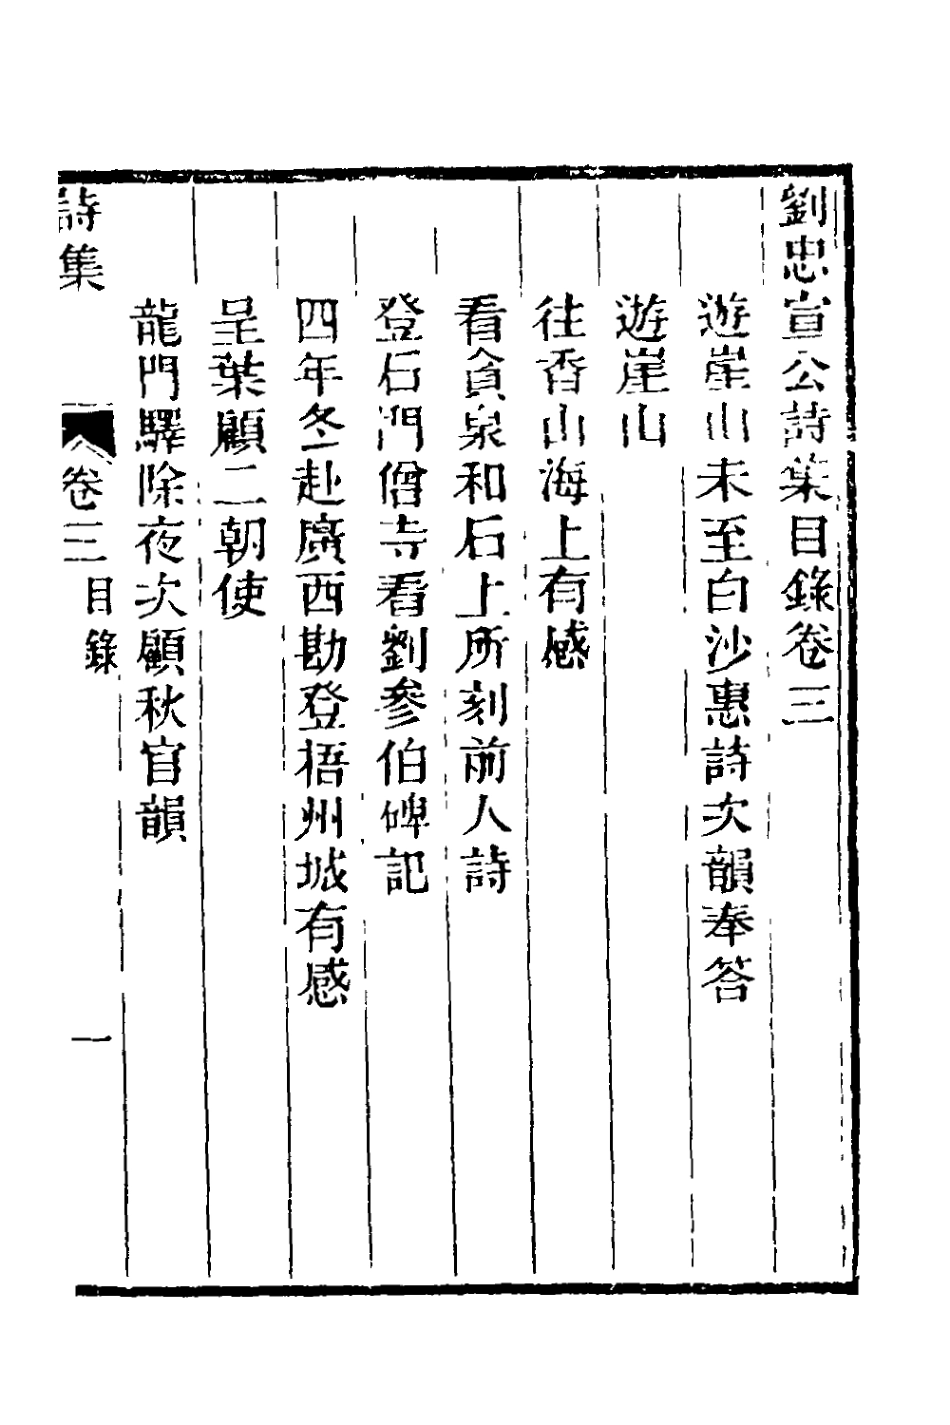 劉忠宣公詩集目錄卷三
遊崖山未至白沙惠詩次韻奉答
遊崖山
往香山海上有感
看貪泉和石上所刻前人詩
登石門僧寺看劉參伯碑記
四年冬赴廣西勘登梧州城有感
呈葉顧二朝使
龍門驛除夜次顧秋官韻
詩集 卷三 目錄 一